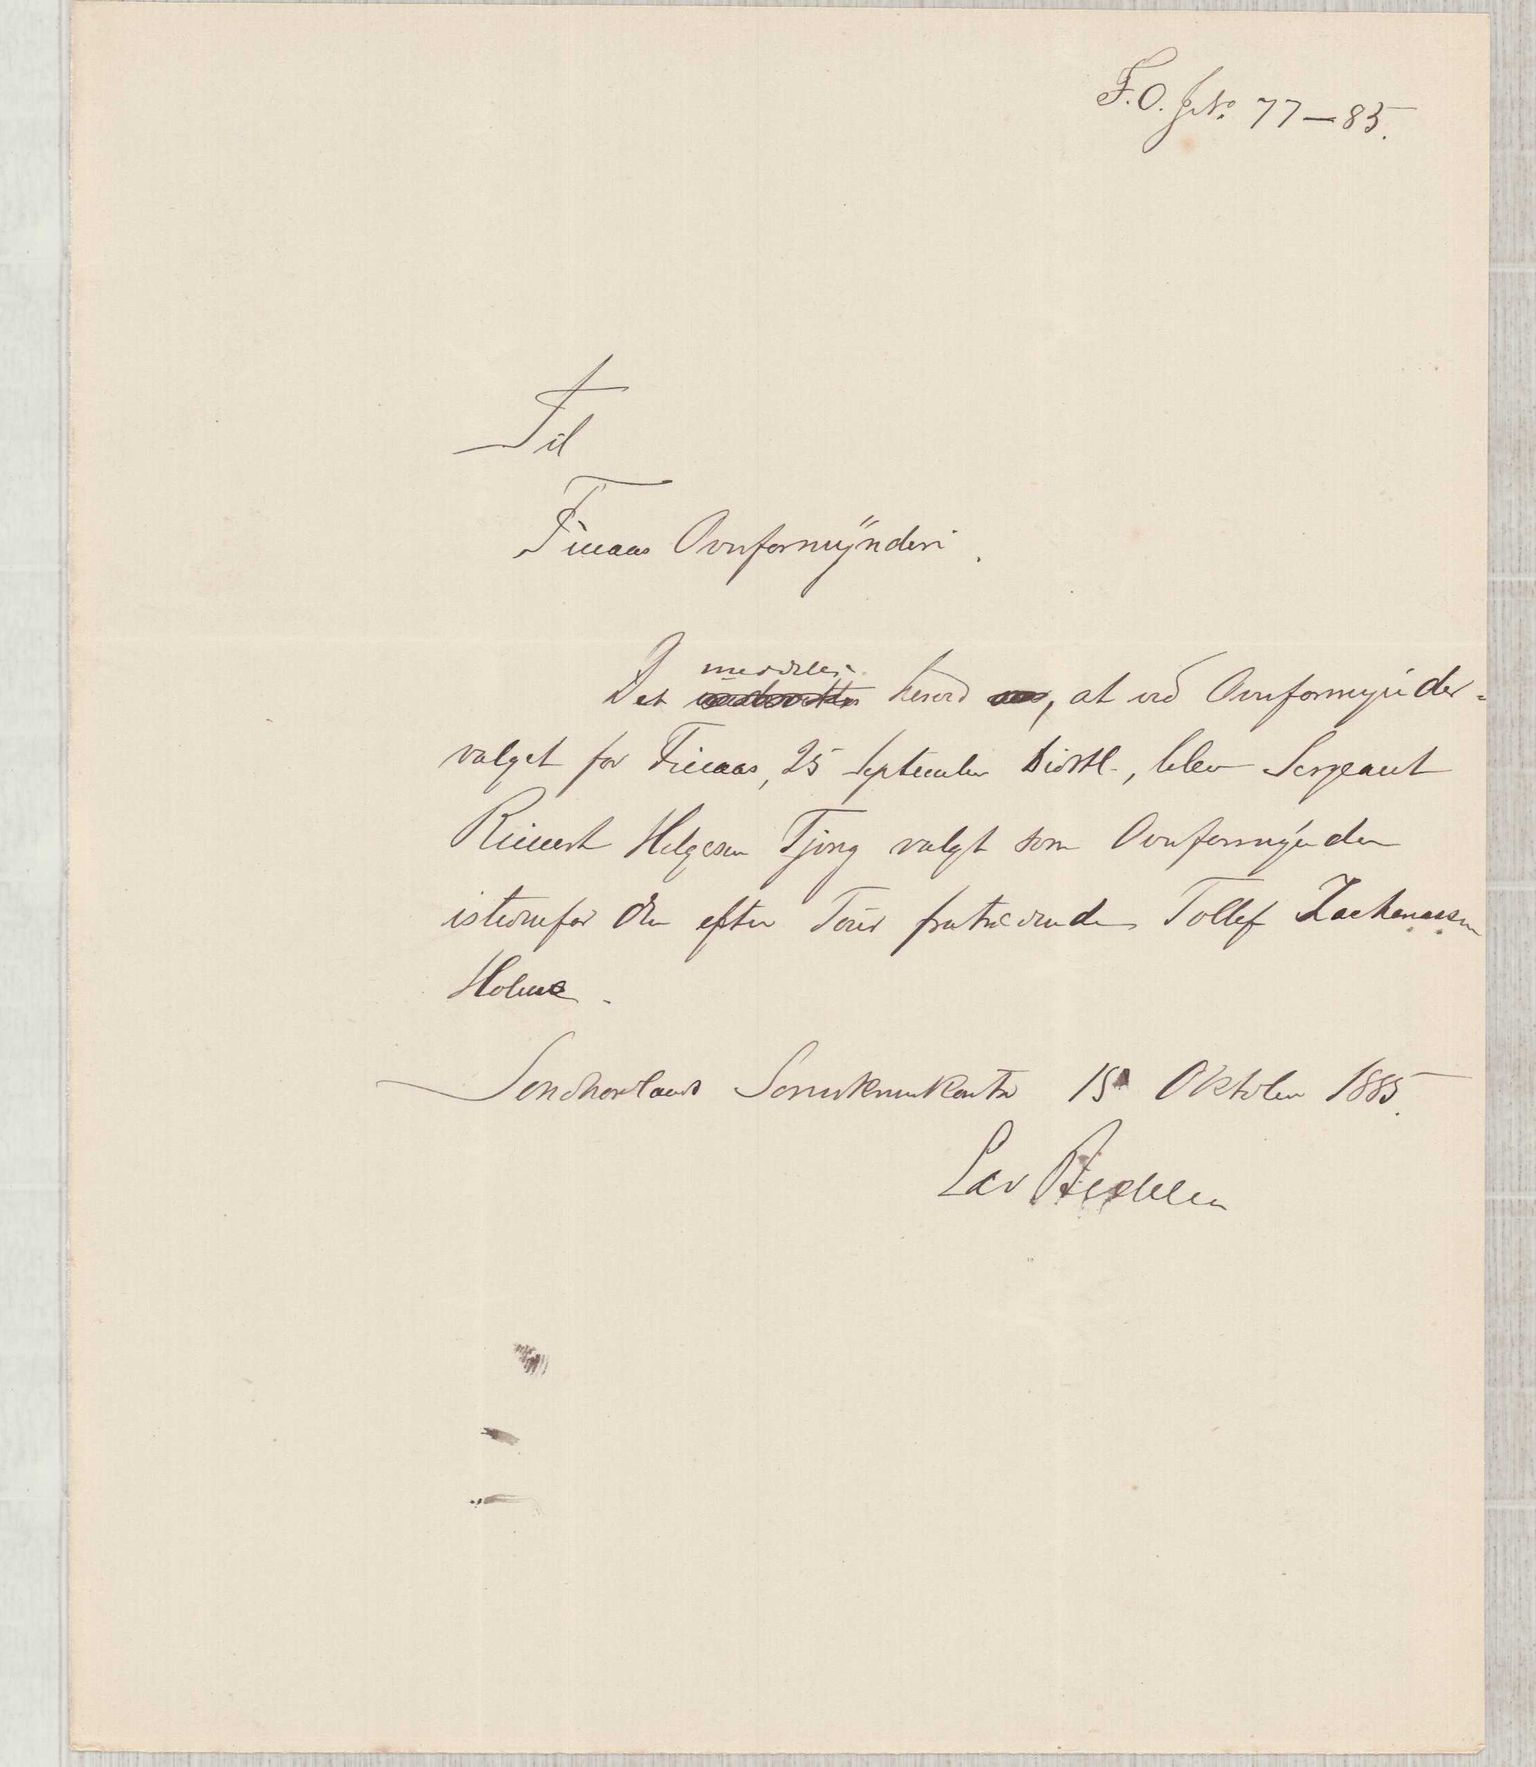 F.O. J.No. 77–85.
Til
Finaas Overformynderi.
meddeles
Det herved, at ved Overformynder-
valget for Finaas, 25 September sidstl., blev Sergeant
Rimert Helgesen Tjong valgt som Overformynder
istedenfor den efter Tour fratrædende Tollef Zachariassen
Holme.
Søndhorlands Sorenskriverkontor 15 Oktober 1885.